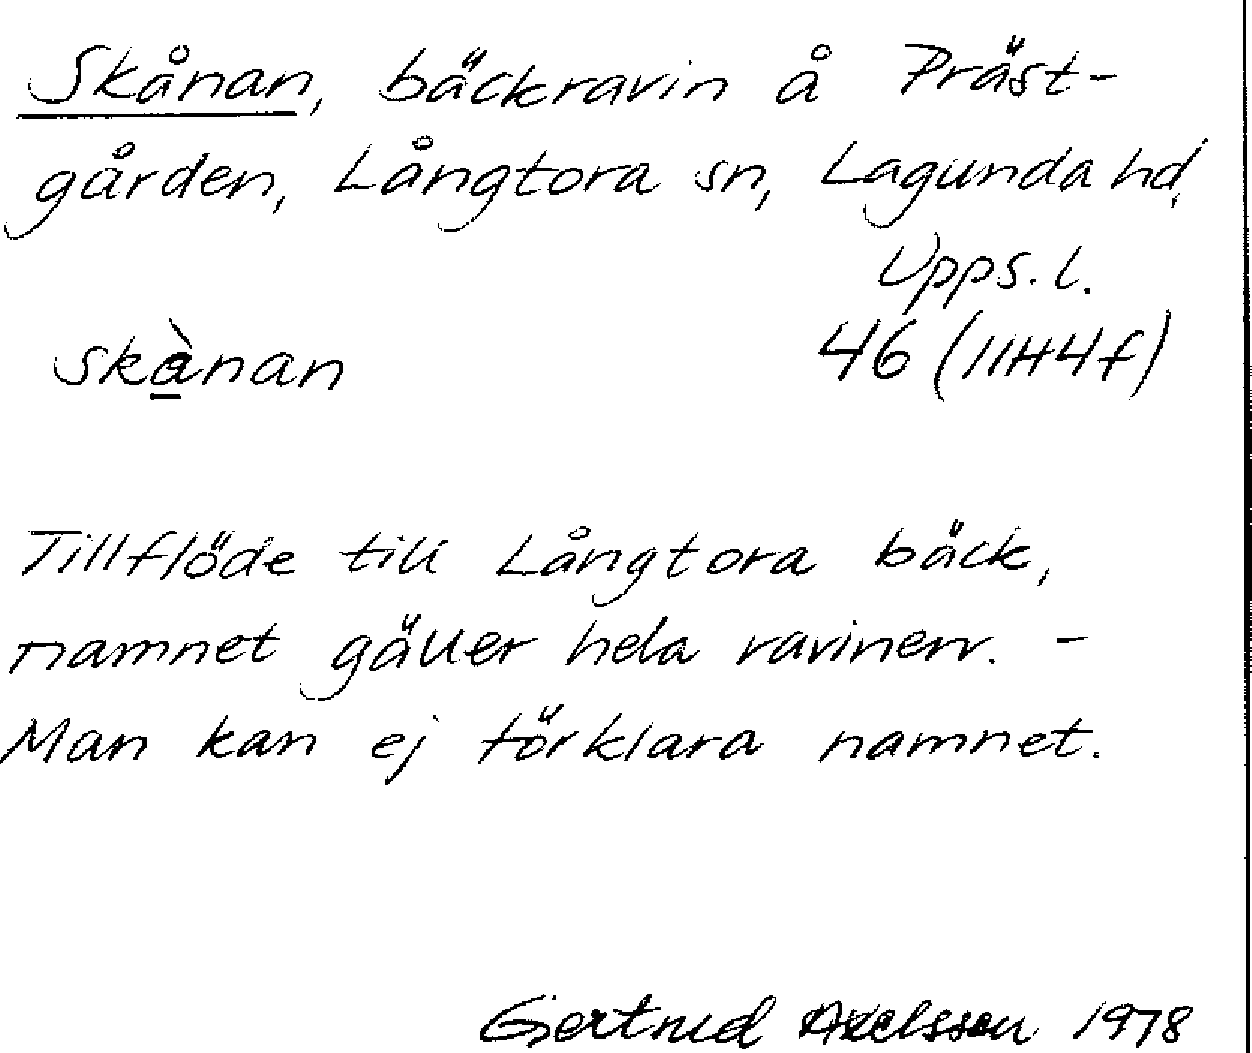 Skånan, bäckravin å Präst-
gården, Långtora sn, Lagunda hd,
Upps. l.
skà̱nan 46 (11H4f)
Tillflöde till Långtora bäck,
namnet gäller hela ravinen. -
Man kan ej förklara namnet.
Gertrud Axelsson 1978